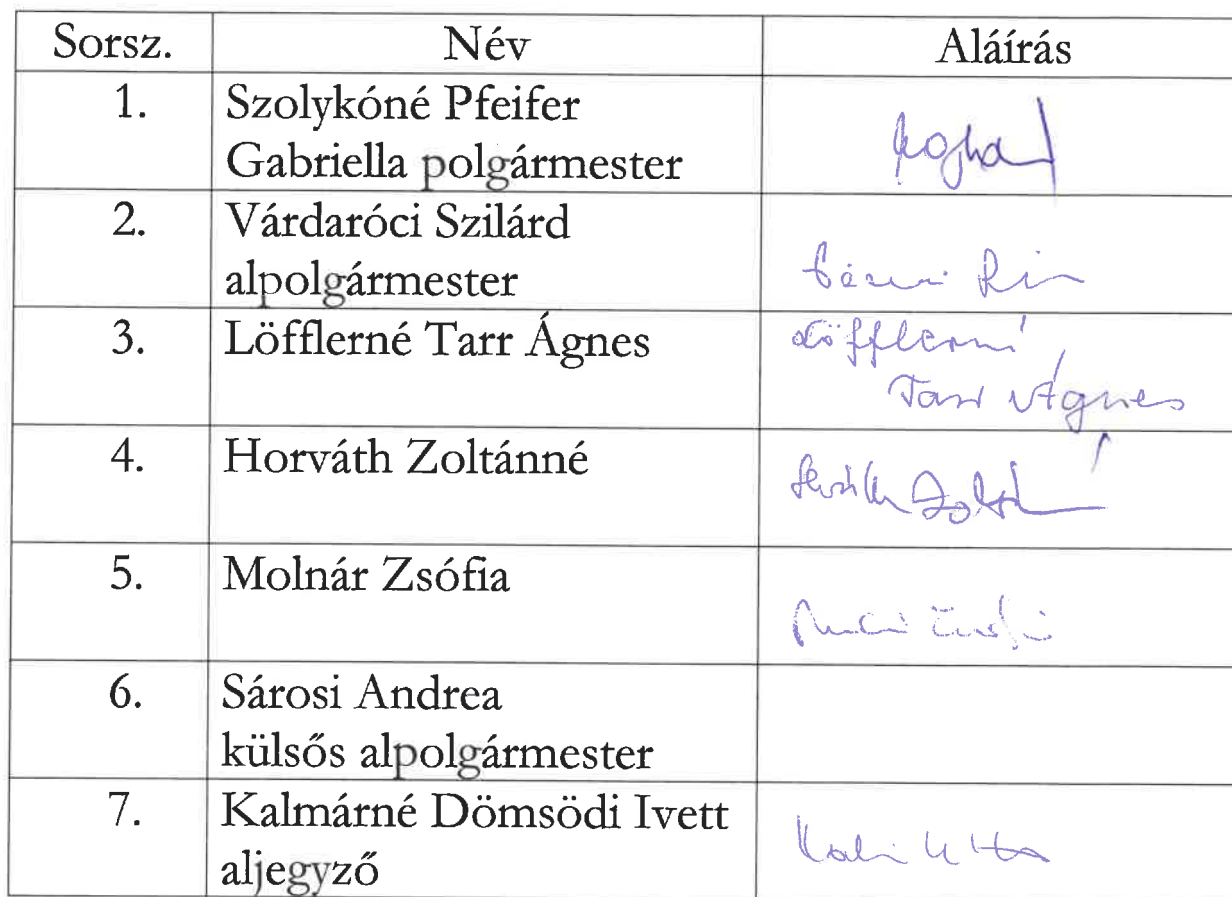 Sorsz. Név Aláírás
1. Szolykóné Pfeifer
Gabriella polgármester
2. Várdaróci Szilárd
alpolgármester
3. Löfflerné Tarr Ágnes Löfflerné
Tarr Ágnes
4. Horváth Zoltánné
5. Molnár Zsófia
6. Sárosi Andrea
külsős alpolgármester
7. Kalmárné Dömsödi Ivett
aljegyző